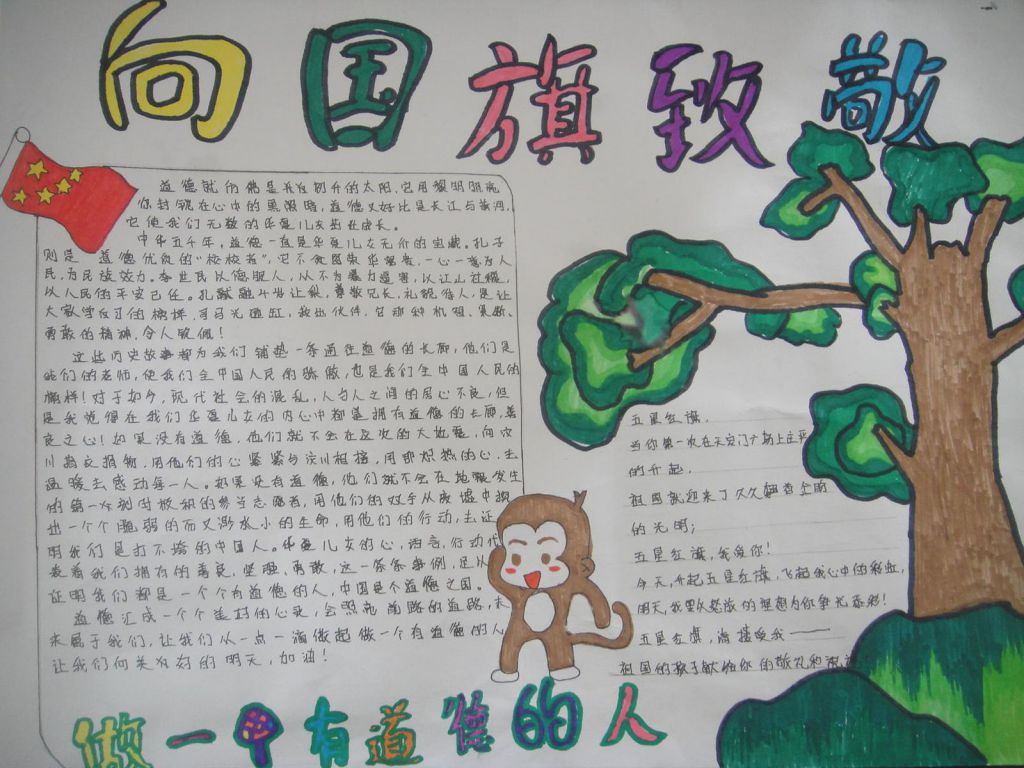 向国旗致敬
道德就仿佛是我们刚升的太阳，它用黎明照亮
你封锁在心中的黑眼睛，道德又好比是长江与黄河，
它使我们无数的华夏儿女茁壮成长。
中华五千年，道德一直是华夏儿女无价的宝藏。孔子
则是道德优良的“
民，为民族效力。李世民以德服人，从不
以人民的平安己任。孔融
大家学习的榜样，司马光砸缸，救出伙伴，它那种机智、果断、
勇敢的精神，令人敬佩！
这些历史故事都为我们铺垫一条通往道德的长廊，他们是
我们的老师，使我们全中国人民的骄傲，也是我们全中国人民的
榜样！对于如今，现代社会的混乱，人与人之间的居心不良，但
是我觉得在我们华夏儿女的内心中都是拥有道德的长廊，善
良之心！如果没有道德，他们就不会在汶川的大地震，向汶
川捐款捐物，用他们的心紧紧与汶川相握，用那炽热的心，去
温暖去感动每一人。如果没有道德，他们就不会在地震发生
的第一时刻积极的参与志愿者，用他们的双手从废墟中挖
出一个个脆弱的而又渺小的生命，用他们的行动，去证
明我们是打不垮的中国人。华夏儿女的心，语言，行动代
表着我们拥有的善良，坚强，勇敢，这一条条事例，足以
证明我们都是一个个有道德的人，中国是个道德之国。
道德汇成一个个美好的心灵，会照亮前路的道路，未
来属于我们，让我们从一点一滴做起做一个有道德的人
让我们向美好的明天，加油！
五星红旗，
当你第一次在天安门广场上庄严
的升起，
祖国就迎来了
的光明；
五星红旗，我爱你！
今天，升起五星红旗，飞起我心中的彩虹，
明天，我要以绽放的理想为你争光添彩！
五星红旗，请接受我——
祖国的孩子献给你的敬礼和
做一个有道德的人